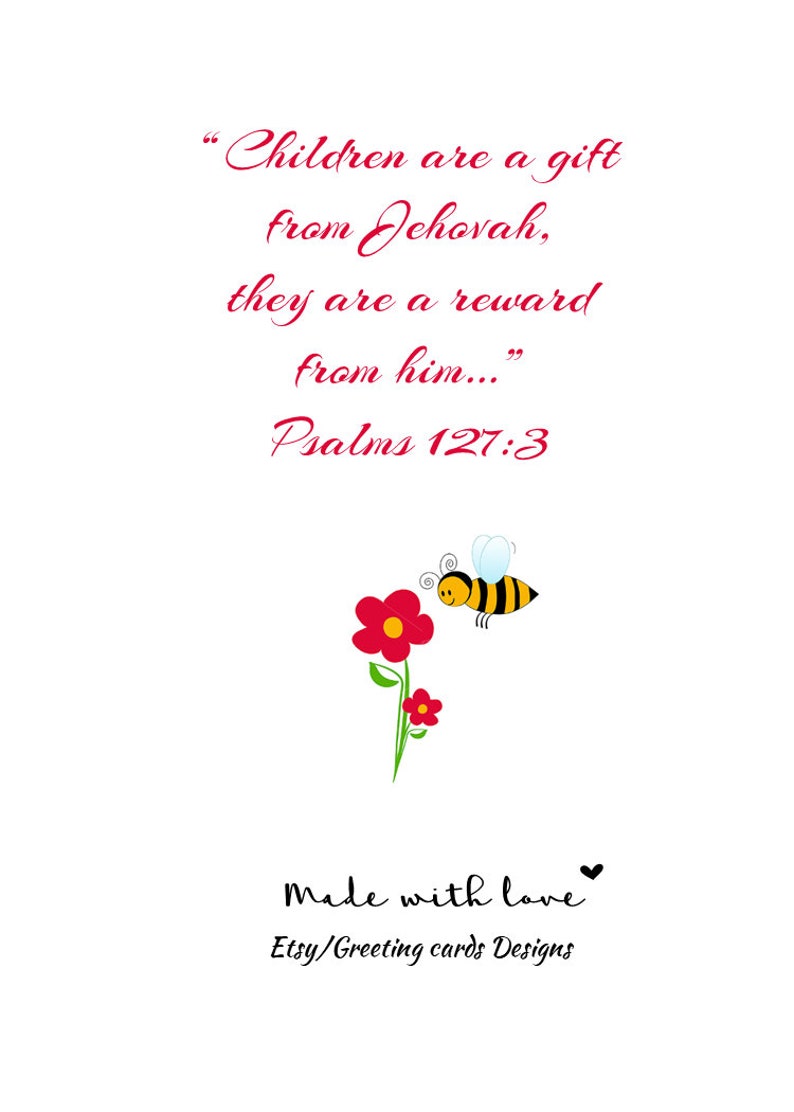 “Children are a gift
from Jehovah,
they are a reward
from him...”
Psalms 127:3
Made with love
Etsy/Greeting cards Designs